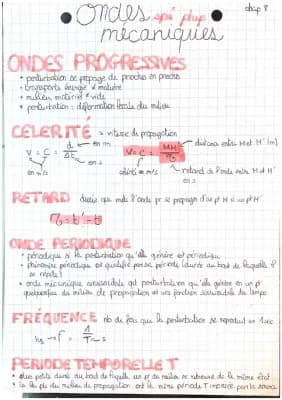 • Ondes spé phys • chap 8
mécaniques
ONDES PROGRESSIVES
• perturbation se propage de proche en proche
• transporte énergie ≠ matière
• milieu matériel ≠ vide
• perturbation : déformation locale du milieu
CÉLERITÉ = vitesse de propagation
V = C = d/Δt
en m
en s
en m/s
V = C = MM'/τ
distance entre M et M' (m)
célérité en m/s
retard de l'onde entre M et M' en s
RETARD durée que met l'onde pr se propager d'un pt M à un pt M'
τ = t' - t
ONDE PERIODIQUE
• périodique si la perturbation qu'elle génère est périodique
• phénomène périodique est qualifié par sa période (durée au bout de laquelle il
se répète)
• onde mécanique sinusoïdale qd perturbation qu'elle génère en un pt
quelconque du milieu de propagation est une fonction sinusoïdale du temps
FRÉQUENCE nb de fois que la perturbation se reproduit en 1 sec
Hz f = 1/T s
PERIODE TEMPORELLE T
• plus petite durée au bout de laquelle un pt du milieu se retrouve de la même état
• la du milieu de propagation ont la même période T imposée par la source